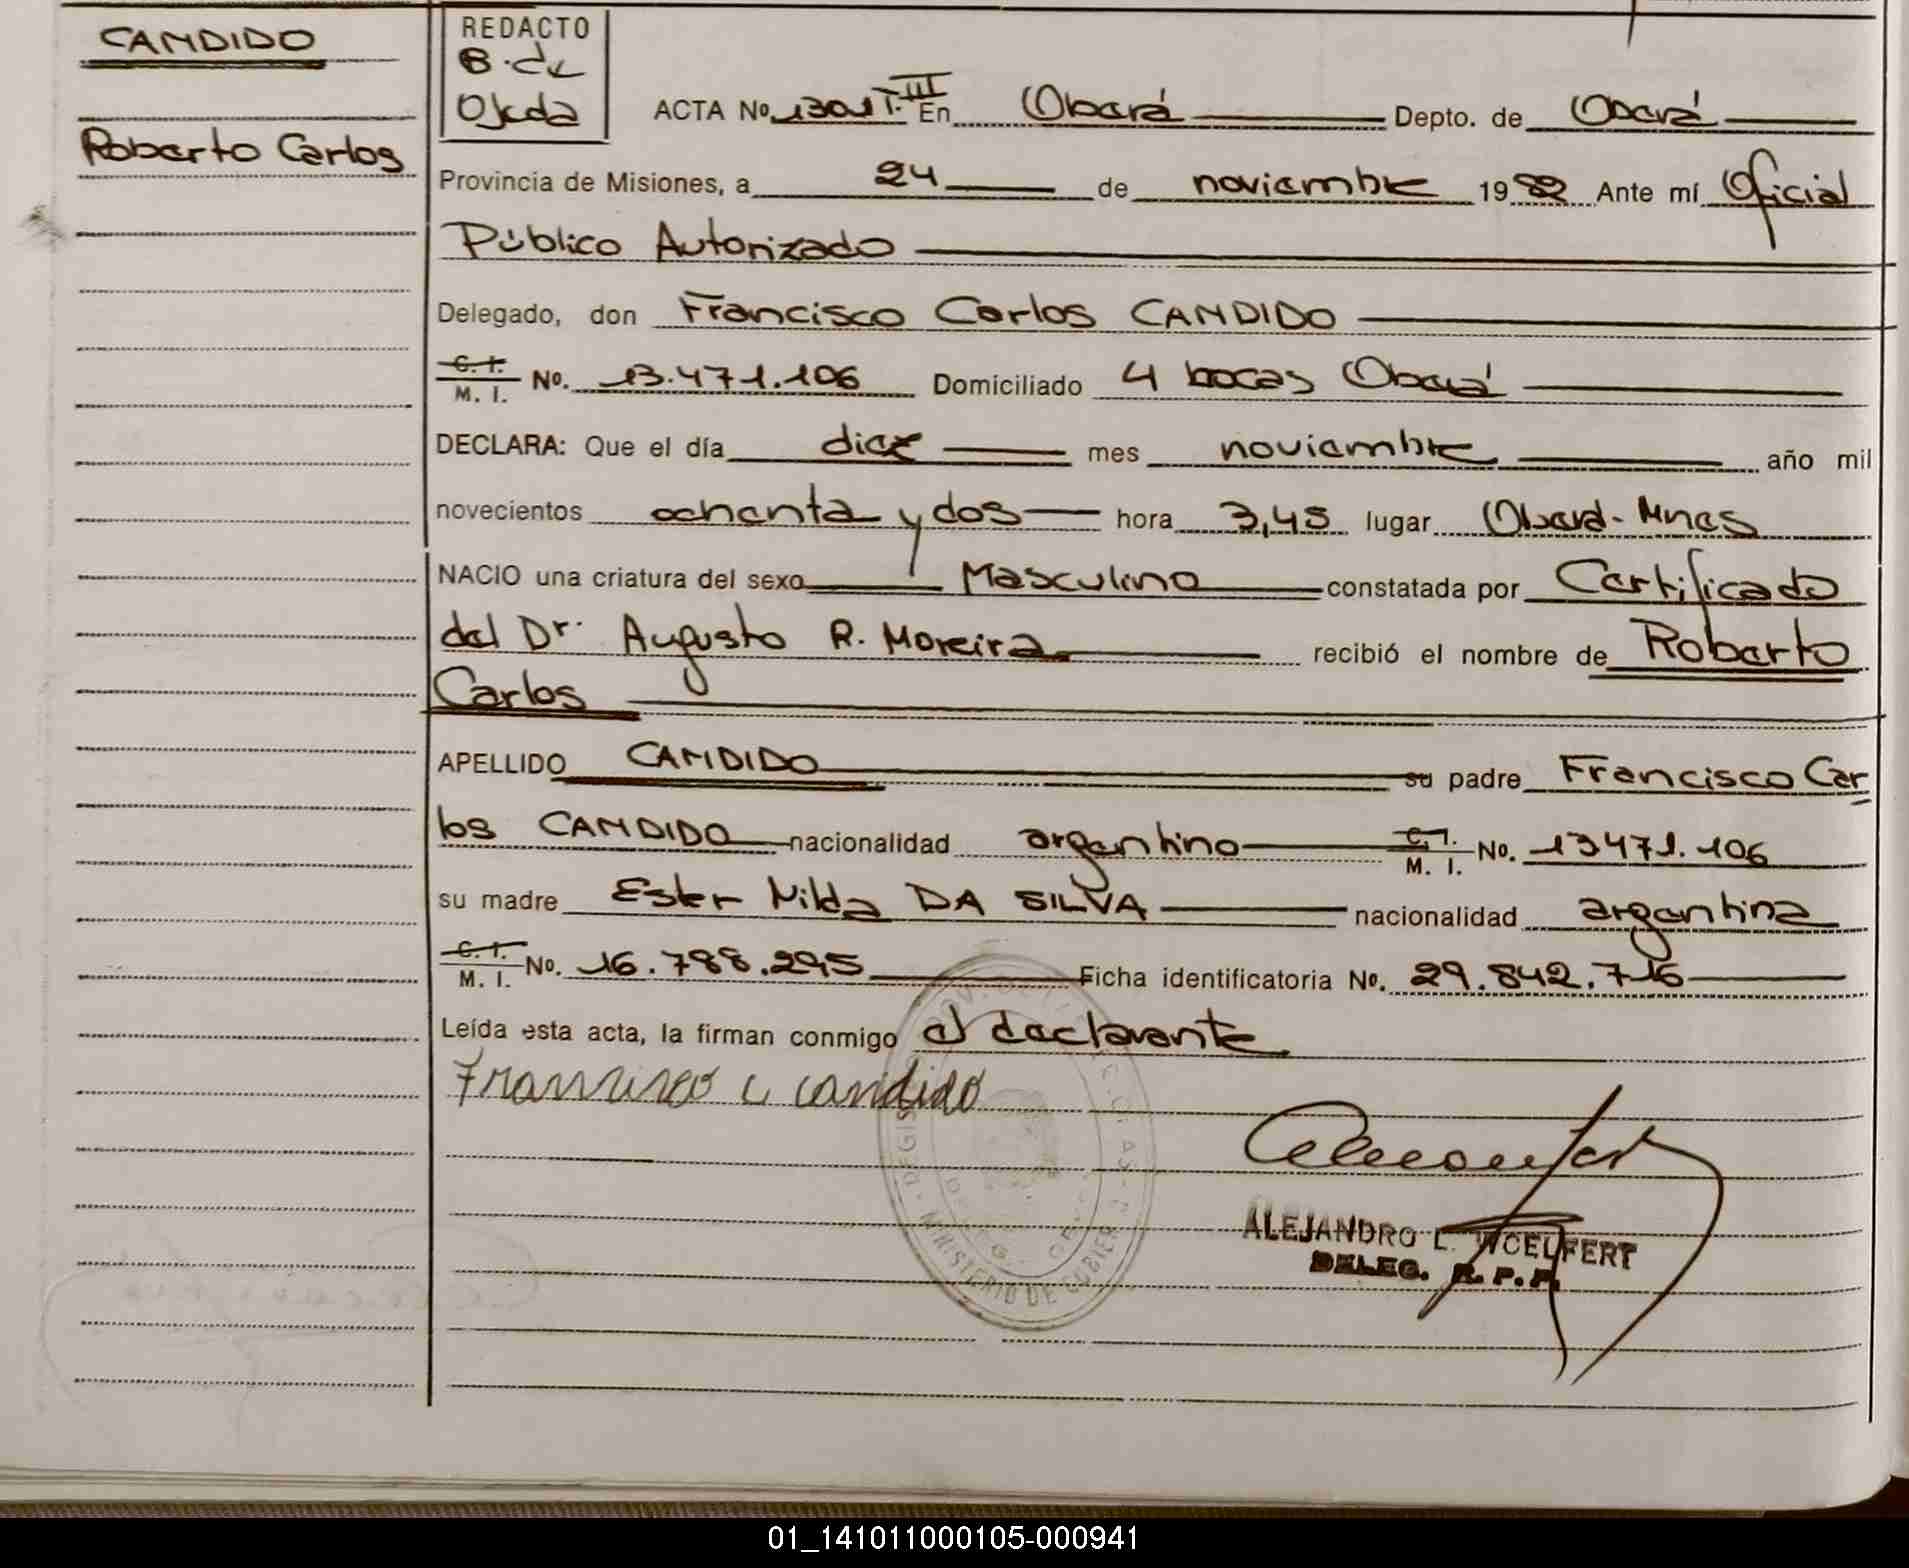 CANDIDO
Roberto Carlos
REDACTO
B. de
Ojeda
ACTA No. 1301 T. III En Oberá Depto. de Oberá
Provincia de Misiones, a 24 de noviembre 1982 Ante mí Oficial
Público Autorizado
Delegado, don Francisco Carlos CANDIDO
C. I.
M. I. No. 13.471.106 Domiciliado 4 bocas Oberá
DECLARA: Que el día diez mes noviembre año mil
novecientos ochenta y dos hora 3,45 lugar Oberá-Mnes
NACIO una criatura del sexo Masculino constatada por Certificado
del Dr. Augusto R. Moreira recibió el nombre de Roberto
Carlos
APELLIDO CANDIDO su padre Francisco Car
los CANDIDO nacionalidad argentino C. I.
M. I. No. 13471.106
su madre Ester Nilda DA SILVA nacionalidad argentina
C. I.
M. I. No. 16.788.295 Ficha identificatoria No. 29.842.716
Leída esta acta, la firman conmigo el declarante
Francisco c candido
MINISTERIO DE GOBIER
ALEJANDRO L. WOELFERT
DELEG. R. P. P.
01_141011000105-000941